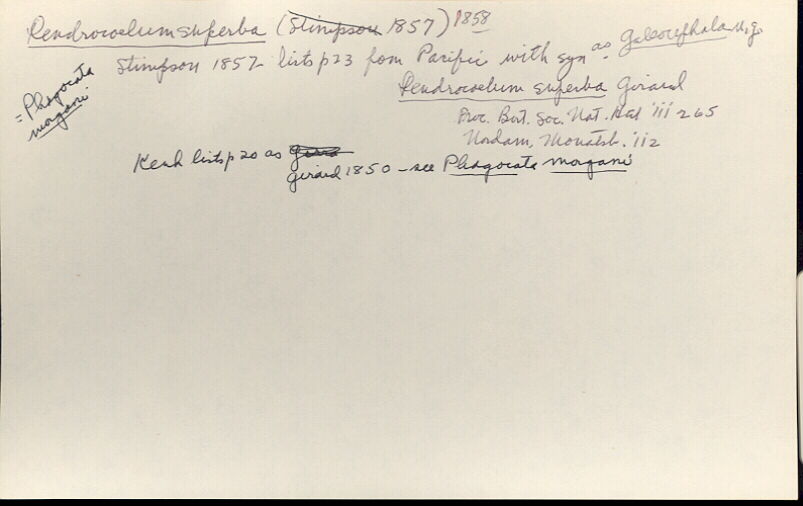 Dendrocoelum superba (Stimpson 1857) 1858
Stimpson 1857 lists p23 from Pacific with syn as Galeocephala n.g.
= Phagocata morgani
Dendrocoelum superba Girard
Proc. Bost. Soc. Nat. Hist iii 265
Nordam. Monatsb. ii 2
Kenk lists p 20 as
Girard 1850 - see Phagocata morgani